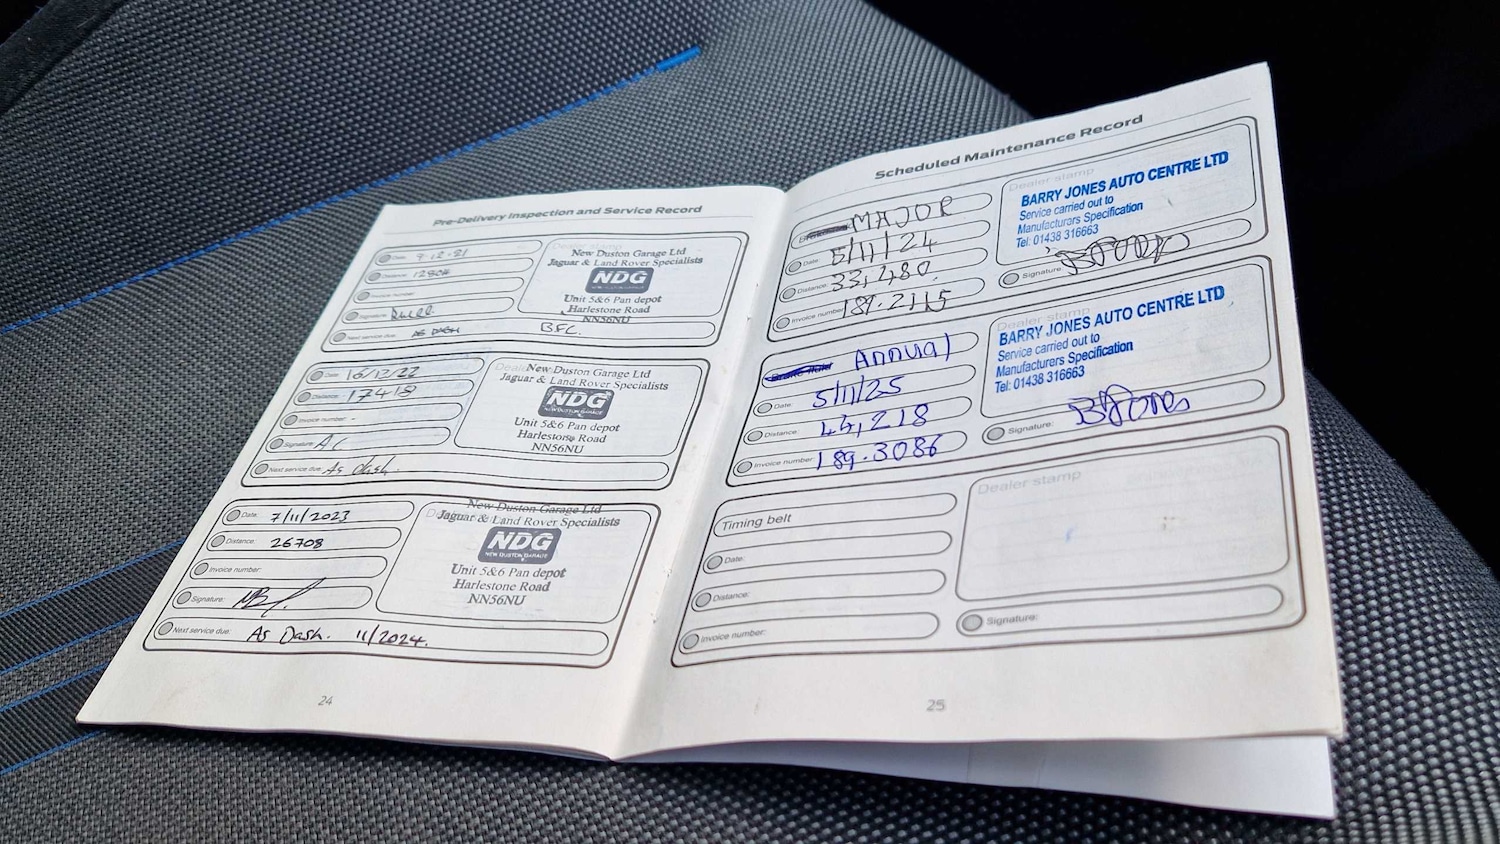 Pre-Delivery Inspection and Service Record
Date: 9.12.21
Distance:
Invoice number:
Signature:
Next service due: AS DASH BFC.
Dealer stamp
New Duston Garage Ltd
Jaguar & Land Rover Specialists
NDG
Unit 5&6 Pan depot
Harlestone Road
NN56NU
Date: 16/12/22
Distance: 17418
Invoice number: -
Signature:
Next service due: As dash.
New Duston Garage Ltd
Jaguar & Land Rover Specialists
NDG
NEW DUSTON GARAGE
Unit 5&6 Pan depot
Harlestone Road
NN56NU
Date: 7/11/2023
Distance: 26708
Invoice number:
Signature:
Next service due: As Dash. 11/2024.
New Duston Garage Ltd
Jaguar & Land Rover Specialists
NDG
NEW DUSTON GARAGE
Unit 5&6 Pan depot
Harlestone Road
NN56NU
24
Scheduled Maintenance Record
MAJOR
Date: 5/11/24
Distance: 33,480.
Invoice number: 189.2115
Dealer stamp
BARRY JONES AUTO CENTRE LTD
Service carried out to
Manufacturers Specification
Tel: 01438 316663
Signature:
Annual
Date: 5/11/25
Distance: 44,218
Invoice number: 189.3086
Dealer stamp
BARRY JONES AUTO CENTRE LTD
Service carried out to
Manufacturers Specification
Tel: 01438 316663
Signature:
Timing belt
Date:
Distance:
Invoice number:
Dealer stamp
Signature:
25